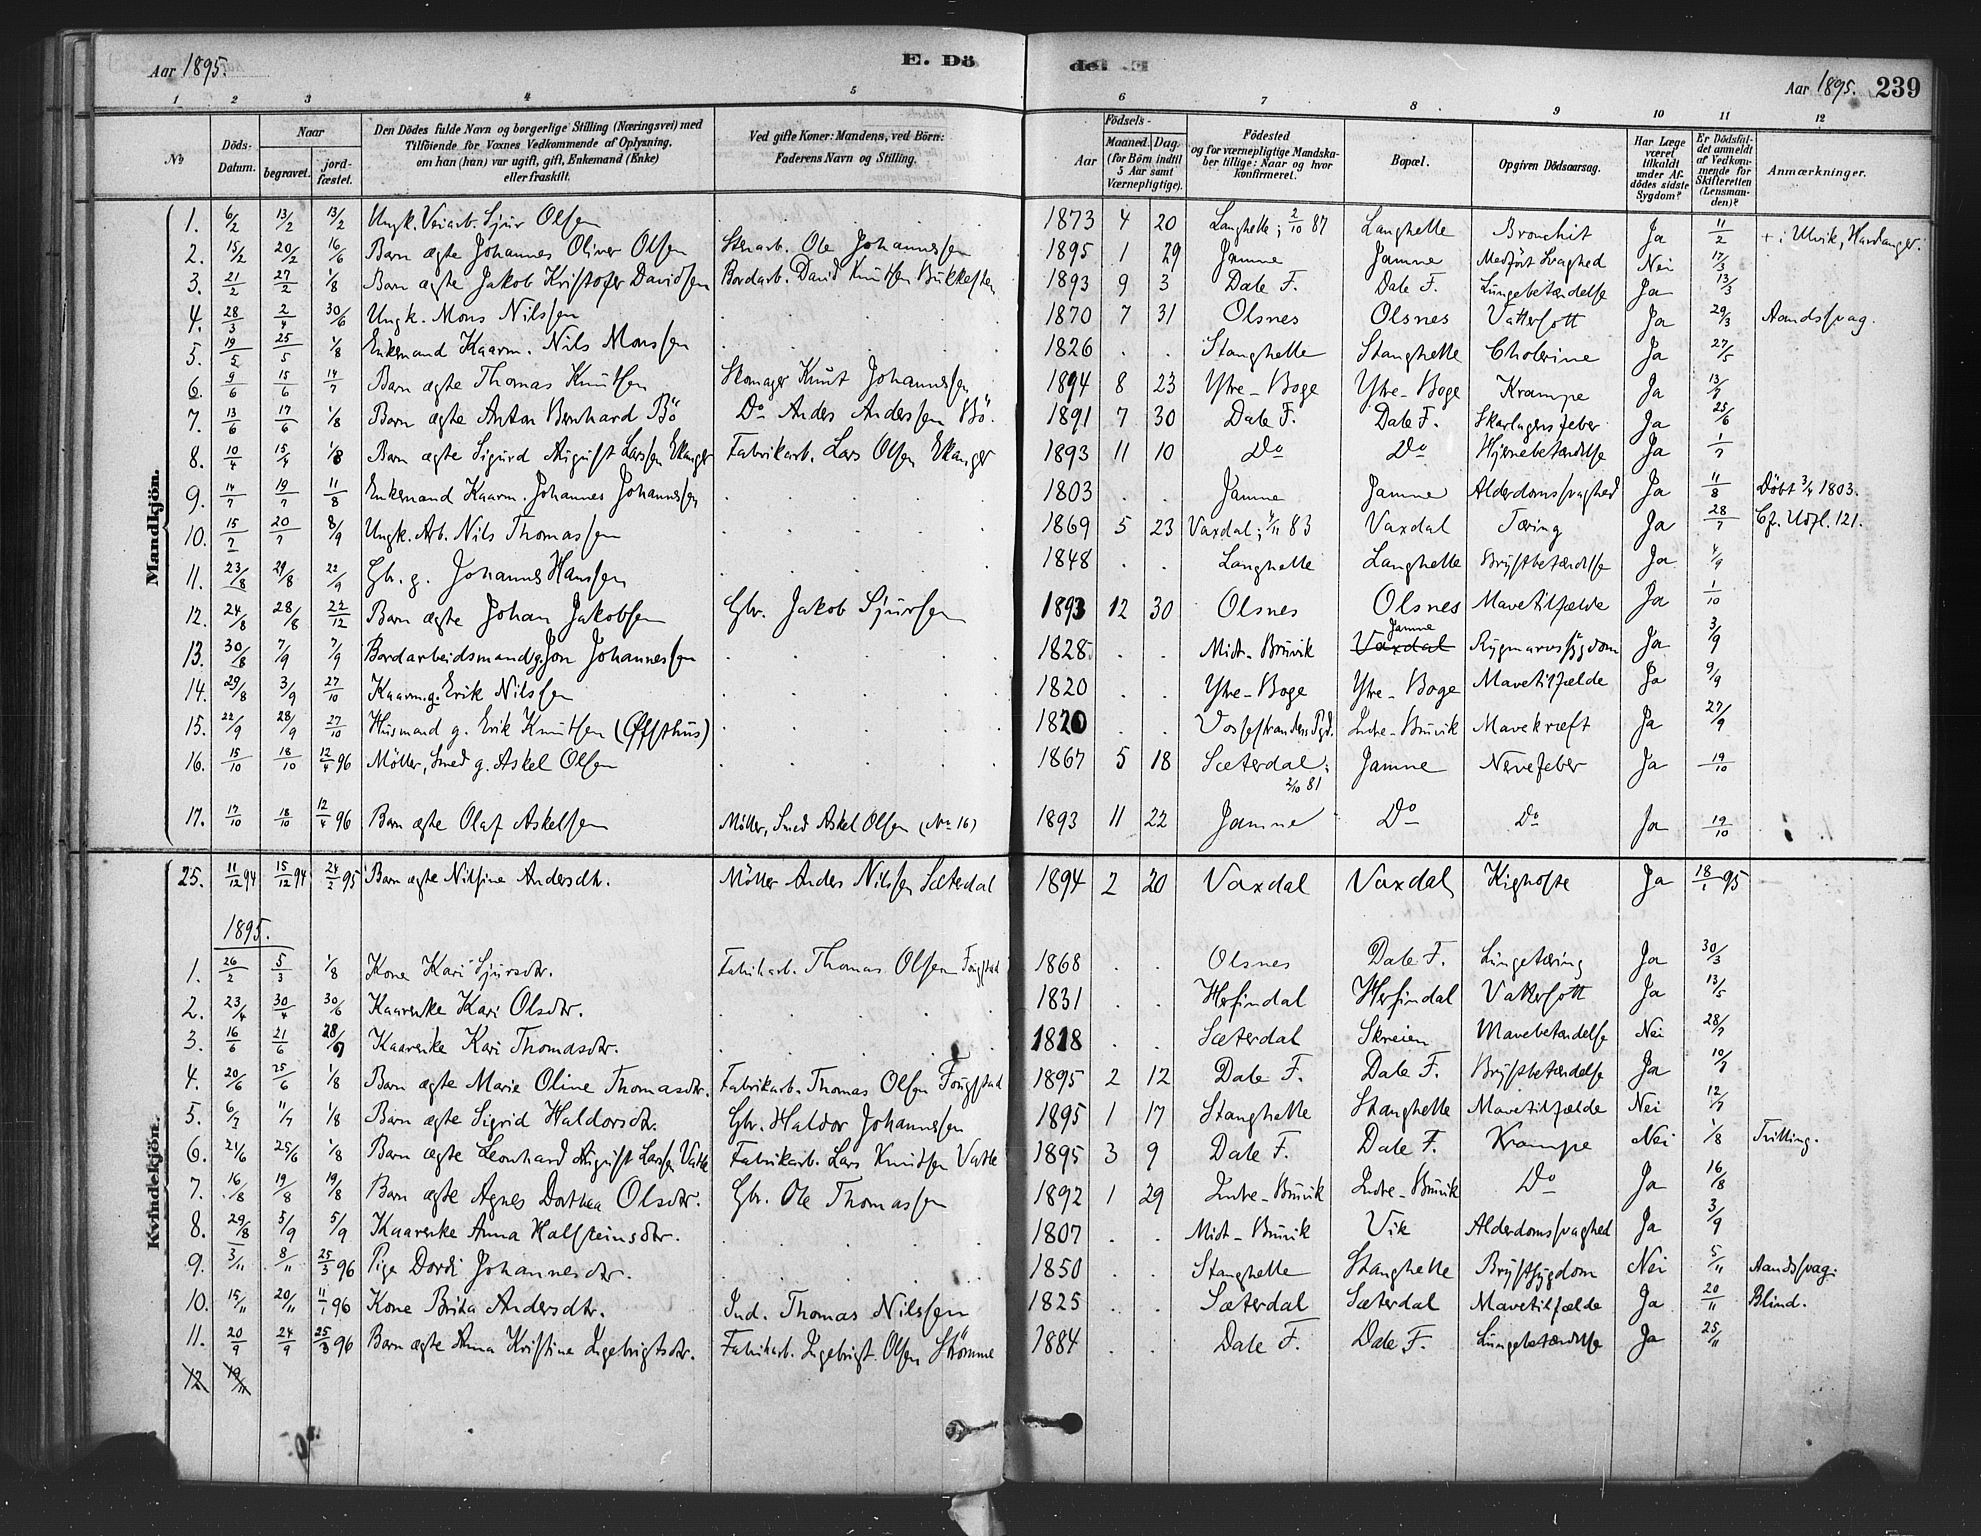 Aar 1895. E. Dö de. Aar 1895. 239
1 2 3 4 5 6 7 8 9 10 11 12
No
Döds-Datum.
Naar
begravet.
jord-fæstet.
Den Dödes fulde Navn og borgerlige Stilling (Næringsvei) med
Tilföiende for Voxnes Vedkommende af Oplysning,
om han (hun) var ugift, gift, Enkemand (Enke)
eller fraskilt.
Ved gifte Koner: Mandens, ved Börn:
Faderens Navn og Stilling.
Födsels-
Aar
Maaned. Dag.
(for Börn indtil
5 Aar samt
Værnepligtige).
Födested
og for værnepligtige Mandska-
ber tillige: Naar og hvor
konfirmeret.
Bopæl.
Opgiven Dödsaarsag.
Har Læge
været
tilkaldt
under Af-
dödes sidste
Sygdom?
Er Dödsfal-
det anmeldt
af Vedkom-
mende for
Skifteretten
(Lensman-
den)?
Anmærkninger.
Mandkjön.
1. 6/2 13/2 13/2 Ungk. Veiarb. Sjur Olsen . 1873 4 20 Langhelle; 2/10 87 Langhelle Bronchit Ja 11/2 + i Ulvik, Hardanger.
2. 15/2 20/2 16/6 Barn ægte Johannes Oliver Olsen Stenarb. Ole Johannessen 1895 1 29 Jamne Jamne Medfört Svaghed Nei 17/3
3. 21/2 27/2 1/8 Barn ægte Jakob Kristofer Davidsen Bordarb. David Knutsen Bukkesten 1893 9 3 Dale F. Dale F. Lungebetændelse Ja 13/3
4. 28/3 2/4 30/6 Ungk. Mons Nilssen . 1870 7 31 Olsnes Olsnes Vattersott Ja 29/3 Aandssvag.
5. 19/5 25/5 1/8 Enkemand Kaarm. Nils Monssen . 1826 . . Stanghelle Stanghelle Cholerine Ja 27/5
6. 9/6 15/6 14/7 Barn ægte Thomas Knutsen Skomager Knut Johannessen 1894 8 23 Ytre-Boge Ytre-Boge Krampe Ja 13/7
7. 13/6 17/6 1/8 Barn ægte Anton Bernhard Bö Do Anders Anderssen Bö. 1891 7 30 Dale F. Dale F. Skarlagensfeber Ja 25/6
8. 10/4 15/4 1/8 Barn ægte Sigurd August Larssen Ekanger Fabrikarb. Lars Olsen Ekanger 1893 11 10 Do Do Hjernebetændelse Ja 1/7
9. 14/7 19/7 11/8 Enkemand Kaarm. Johannes Johannessen . 1803 . . Jamne Jamne Alderdomssvaghed Ja 11/8 Döbt 3/4 1803.
10. 15/7 20/7 8/9 Ungk. Arb. Nils Thomassen . 1869 5 23 Vaxdal; 4/11 83 Vaxdal Tæring Ja 28/7 Cf. Udfl. 121.
11. 23/8 29/8 22/9 Gbr. g. Johannes Hanssen . 1848 . . Langhelle Langhelle Brystbetændelse Ja 4/9
12. 24/8 28/8 22/12 Barn ægte Johan Jakobsen Gbr. Jakob Sjursen 1893 12 30 Olsnes Olsnes Mavetilfælde Ja 1/10
13. 30/8 7/9 7/9 Bordarbeidsmand g. Jon Johannessen . 1828 . . Midt-Bruvik Vaxdal Jamne Rygmarvssygdom Ja 3/9
14. 29/8 3/9 27/10 Kaarm. g. Erik Nilssen . 1820 . . Ytre-Boge Ytre-Boge Mavetilfælde Ja 9/9
15. 22/9 28/9 27/10 Husmand g. Erik Knutsen (Öffsthus) . 1820 . . Vossestrandens Pgd. Indre-Bruvik Mavekræft Ja 27/9
16. 15/10 18/10 12/4 96 Möller, Smed g. Askel Olsen . 1867 5 18 Sæterdal; 2/10 81 Jamne Nervefeber Ja 19/10
17. 17/10 18/10 12/4 96 Barn ægte Olaf Askelsen Möller, Smed Askel Olsen (No 16) 1893 11 22 Jamne Do Do Ja 19/10
Kvindekjön.
25. 11/12 94 15/12 94 24/2 95 Barn ægte Nilsine Andersdtr. Möller Anders Nilssen Sæterdal 1894 2 20 Vaxdal Vaxdal Kighoste Ja 18/1 95
1895.
1. 26/2 5/3 1/8 Kone Kari Sjursdtr. Fabrikarb. Thomas Olsen Fougstad 1868 . . Olsnes Dale F. Lungetæring Ja 30/3
2. 23/4 30/4 30/6 Kaarenke Kari Olsdtr. . 1831 . . Herfindal Herfindal Vattersott Ja 13/5
3. 16/6 21/6 28/7 Kaarenke Kari Thomasdtr. . 1818 . . Sæterdal Skreien Mavebetændelse Nei 28/7
4. 20/6 25/6 1/8 Barn ægte Marie Oline Thomasdtr. Fabrikarb. Thomas Olsen Fougstad 1895 2 12 Dale F. Dale F. Brystbetændelse Ja 10/7
5. 6/7 11/7 1/8 Barn ægte Sigrid Haldorsdtr. Gbr. Haldor Johannessen 1895 1 17 Stanghelle Stanghelle Mavetilfælde Nei 12/7
6. 21/6 25/6 1/8 Barn ægte Leonhard August Larssen Vatle Fabrikarb. Lars Knutsen Vatle 1895 3 9 Dale F. Dale F. Krampe Nei 1/8 Tvilling.
7. 16/8 19/8 19/8 Barn ægte Agnes Dorthea Olsdtr. Gbr. Ole Thomassen 1892 1 29 Indre-Bruvik Indre-Bruvik Do Ja 16/8
8. 29/8 5/9 5/9 Kaarenke Anna Halsteinsdtr. . 1807 . . Midt-Bruvik Vik Alderdomssvaghed Ja 3/9
9. 3/11 8/11 25/3 96 Pige Dordi Johannesdtr. . 1850 . . Stanghelle Stanghelle Brystsygdom Nei 5/11 Aandssvag.
10. 15/11 20/11 11/1 96 Kone Brita Andersdtr. Ind. Thomas Nilssen 1825 . . Sæterdal Sæterdal Mavetilfælde Ja 20/11 Blind.
11. 20/9 24/9 25/3 96 Barn ægte Anna Kristine Ingebrigtsdtr. Fabrikarb. Ingebrigt Olsen Strömme 1884 Dale F. Dale F. Lungebetændelse Ja 25/11
12 19/11